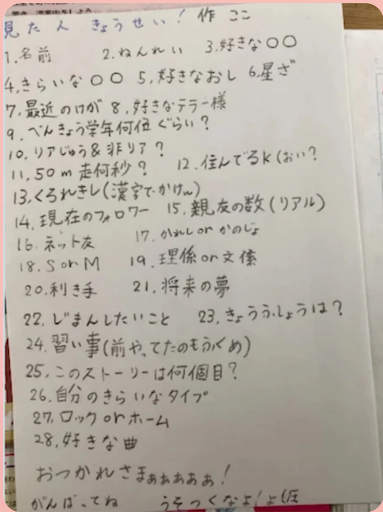 見た人 きょうせい! 作 ここ
1.名前 2.ねんれい 3.好きな〇〇
4.きらいな〇〇 5.好きなおし 6.星ざ
7.最近のけが 8.好きなテラー様
9.べんきょう学年何位ぐらい?
10.リアじゅう&非リア?
11.50m走何秒? 12.住んでるk(おい?
13.くろれきし(漢字でかけw)
14.現在のフォロワー 15.親友の数(リアル)
16.ネット友 17.かれしorかのじょ
18.SorM 19.理係or文係
20.利き手 21.将来の夢
22.じまんしたいこと 23.きょうふしょうは?
24.習い事(前やってたのもふくめ)
25.このストーリーは何個目?
26.自分のきらいなタイプ
27.ロックorホーム
28.好きな曲
おつかれさまぁぁぁぁぁ!
がんばってね うそつくなよ!